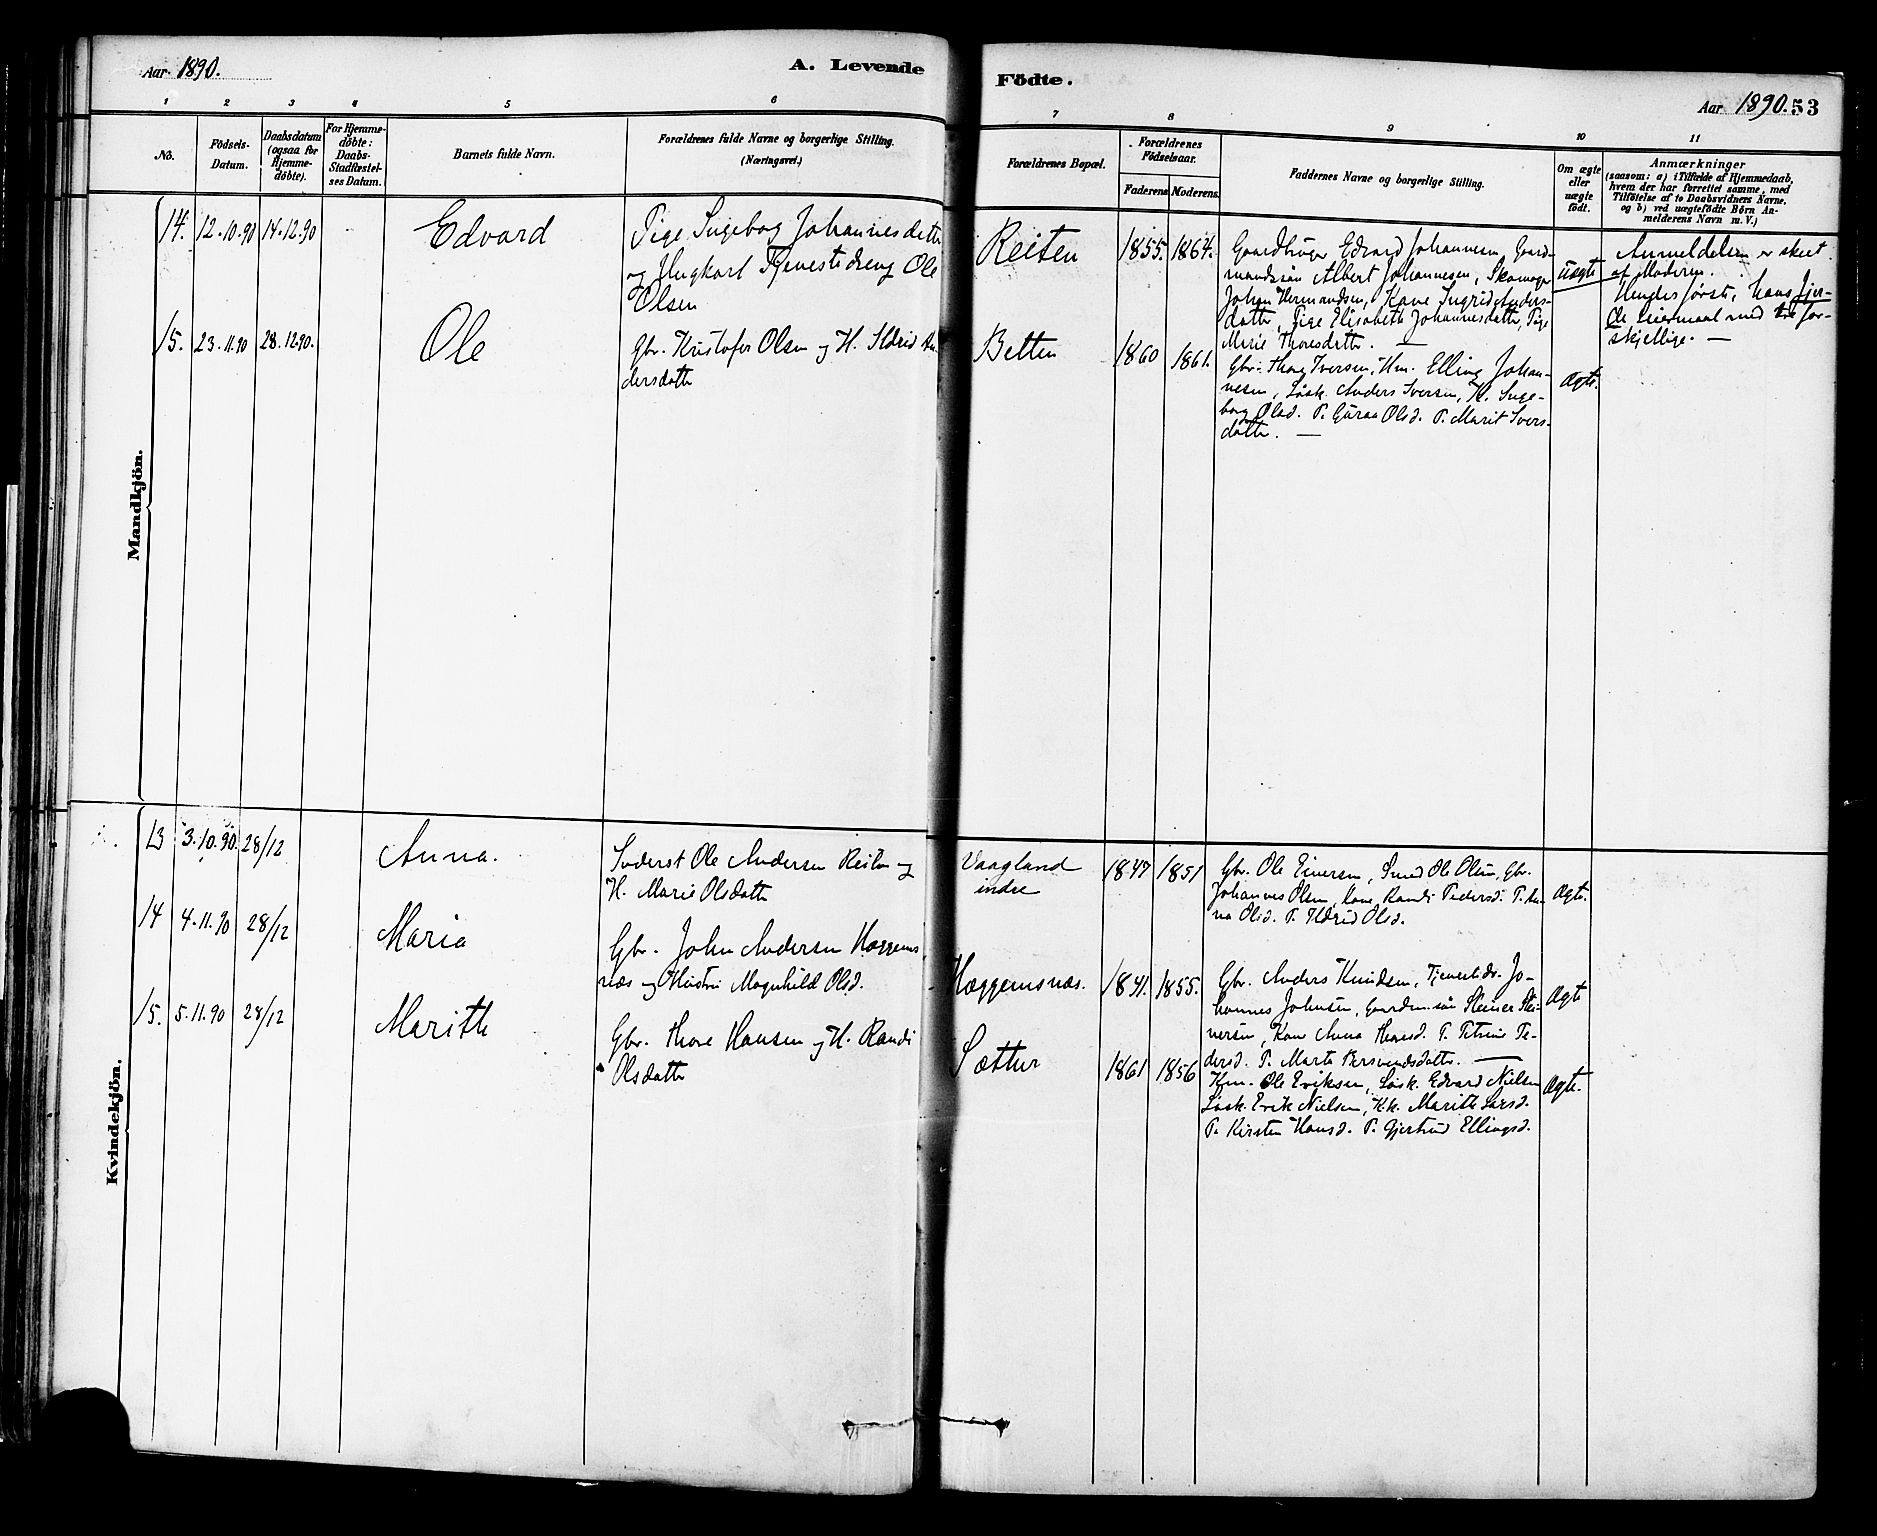 Aar 1890.
A. Levende
Födte.
Aar 1890. 53
1 2 3 4 5 6 7 8 9 10 11
Nô.
Födsels-
Datum.
Daabsdatum
(ogsaa for
Hjemme-
döbte).
For Hjemme-
döbte:
Daabs-
Stadfæstel-
ses Datum.
Barnets fulde Navn.
Forældrenes fulde Navne og borgerlige Stilling.
(Næringsvei.)
Forældrenes Bopæl.
Forældrenes
Födselsaar.
Faderens Moderens.
Faddernes Navne og borgerlige Stilling.
Om ægte
eller
uægte
födt.
Anmærkninger
(saasom: a) i Tilfælde af Hjemmedaab,
hvem der har forrettet samme, med
Tilföielse af to Daabsvidners Navne.
og b) ved uægtefödte Börn An-
melderens Navn m. V.)
Mandkjön.
14. 12.10.90 14.12.90
Edvard
Pige Ingebog Johannesdatte
og Ungkarl Tjenestedreng Ole
Olsen
Reiten
1855. 1864.
Gaardbruger Edvard Johannesen Gaard-
mandssön Albert Johannesen, Skomager
Johan Hermandsen, Kone Ingrid Anders-
datte, Pige Elisabeth Johannesdatte, Pige
Marie Thoresdatte. —
Uægte
Anmeldelsen er skeet
af Moderen.
Hendes förste, hans fjer-
de leiermaal med tre for-
skjellige. —
15. 23.11.90 28.12.90.
Ole
Gbr. Kristofer Olsen og H. Ildrid An-
dersdatte
Betten
1860 1861.
Gbr. Thore Iversen, Hm. Elling Johan-
nesen, Lösk. Anders Iversen, K. Inge-
borg Olsd. P. Guraa Olsd. P. Marit Ivers-
datte. —
Ægte.
Kvindekjön.
13 3.10.90. 28/12
Anna.
Inderst Ole Andersen Reiten og
H. Marie Olsdatte
Vaagland
indre
1847 1851
Gbr. Ole Einersen, Smed Ole Olsen, Gbr.
Johannes Olsen, Kone Randi Pedersd. P. An-
na Olsd. P. Ildrid Olsd.
Ægte.
14 4.11.90 28/12
Maria
Gbr. John Andersen Hæggems-
næs og Hustru Magnhild Olsd.
Hæggemsnæs.
1841. 1855.
Gbr. Anders Knudsen, Tjenestedr. Jo-
hannes Johnsen, Gaardm.sön Steiner Stei-
nersen, Kone Anna Thoresd. P. Petrine Pe-
dersd. P. Marta
Ægte
15. 5.11.90 28/12
Marith
Gbr. Thore Hansen og H. Randi
Olsdatte
Sætter
1861 1856
Hm. Ole Eriksen, Lösk. Edvard Nielsen
Lösk. Erik Nielsen, Kk. Marith Larsd.
P. Kirsten Hansd. P. Gjertrud Ellingsd.
Ægte.